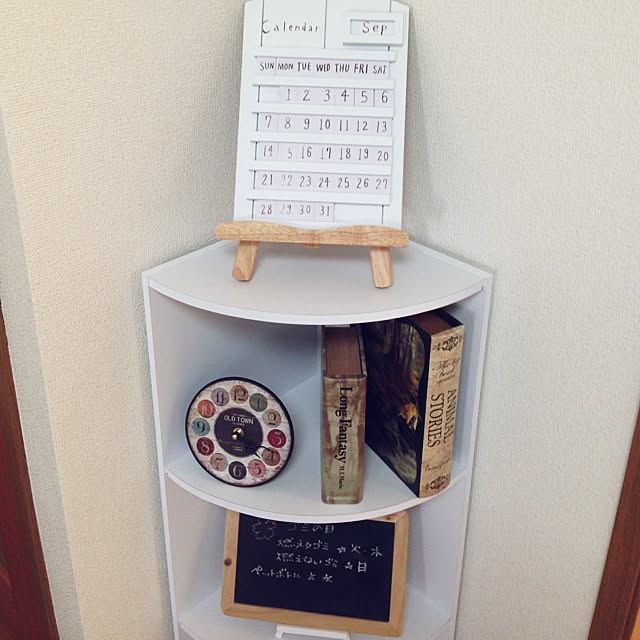 Calendar Sep
SUN MON TUE WED THU FRI SAT
1 2 3 4 5 6
7 8 9 10 11 12 13
14 5 16 17 18 19 20
21 22 23 24 25 26 27
28 29 30 31
12
11
10
9
8
7
6
5
3
2
OLD TOWN
Long Fantasy
ANIMAL
STORIES
ゴミの日
燃えるゴミ ☆ 火・木
燃えないゴミ ☆ 月
ペットボトル ☆ 水